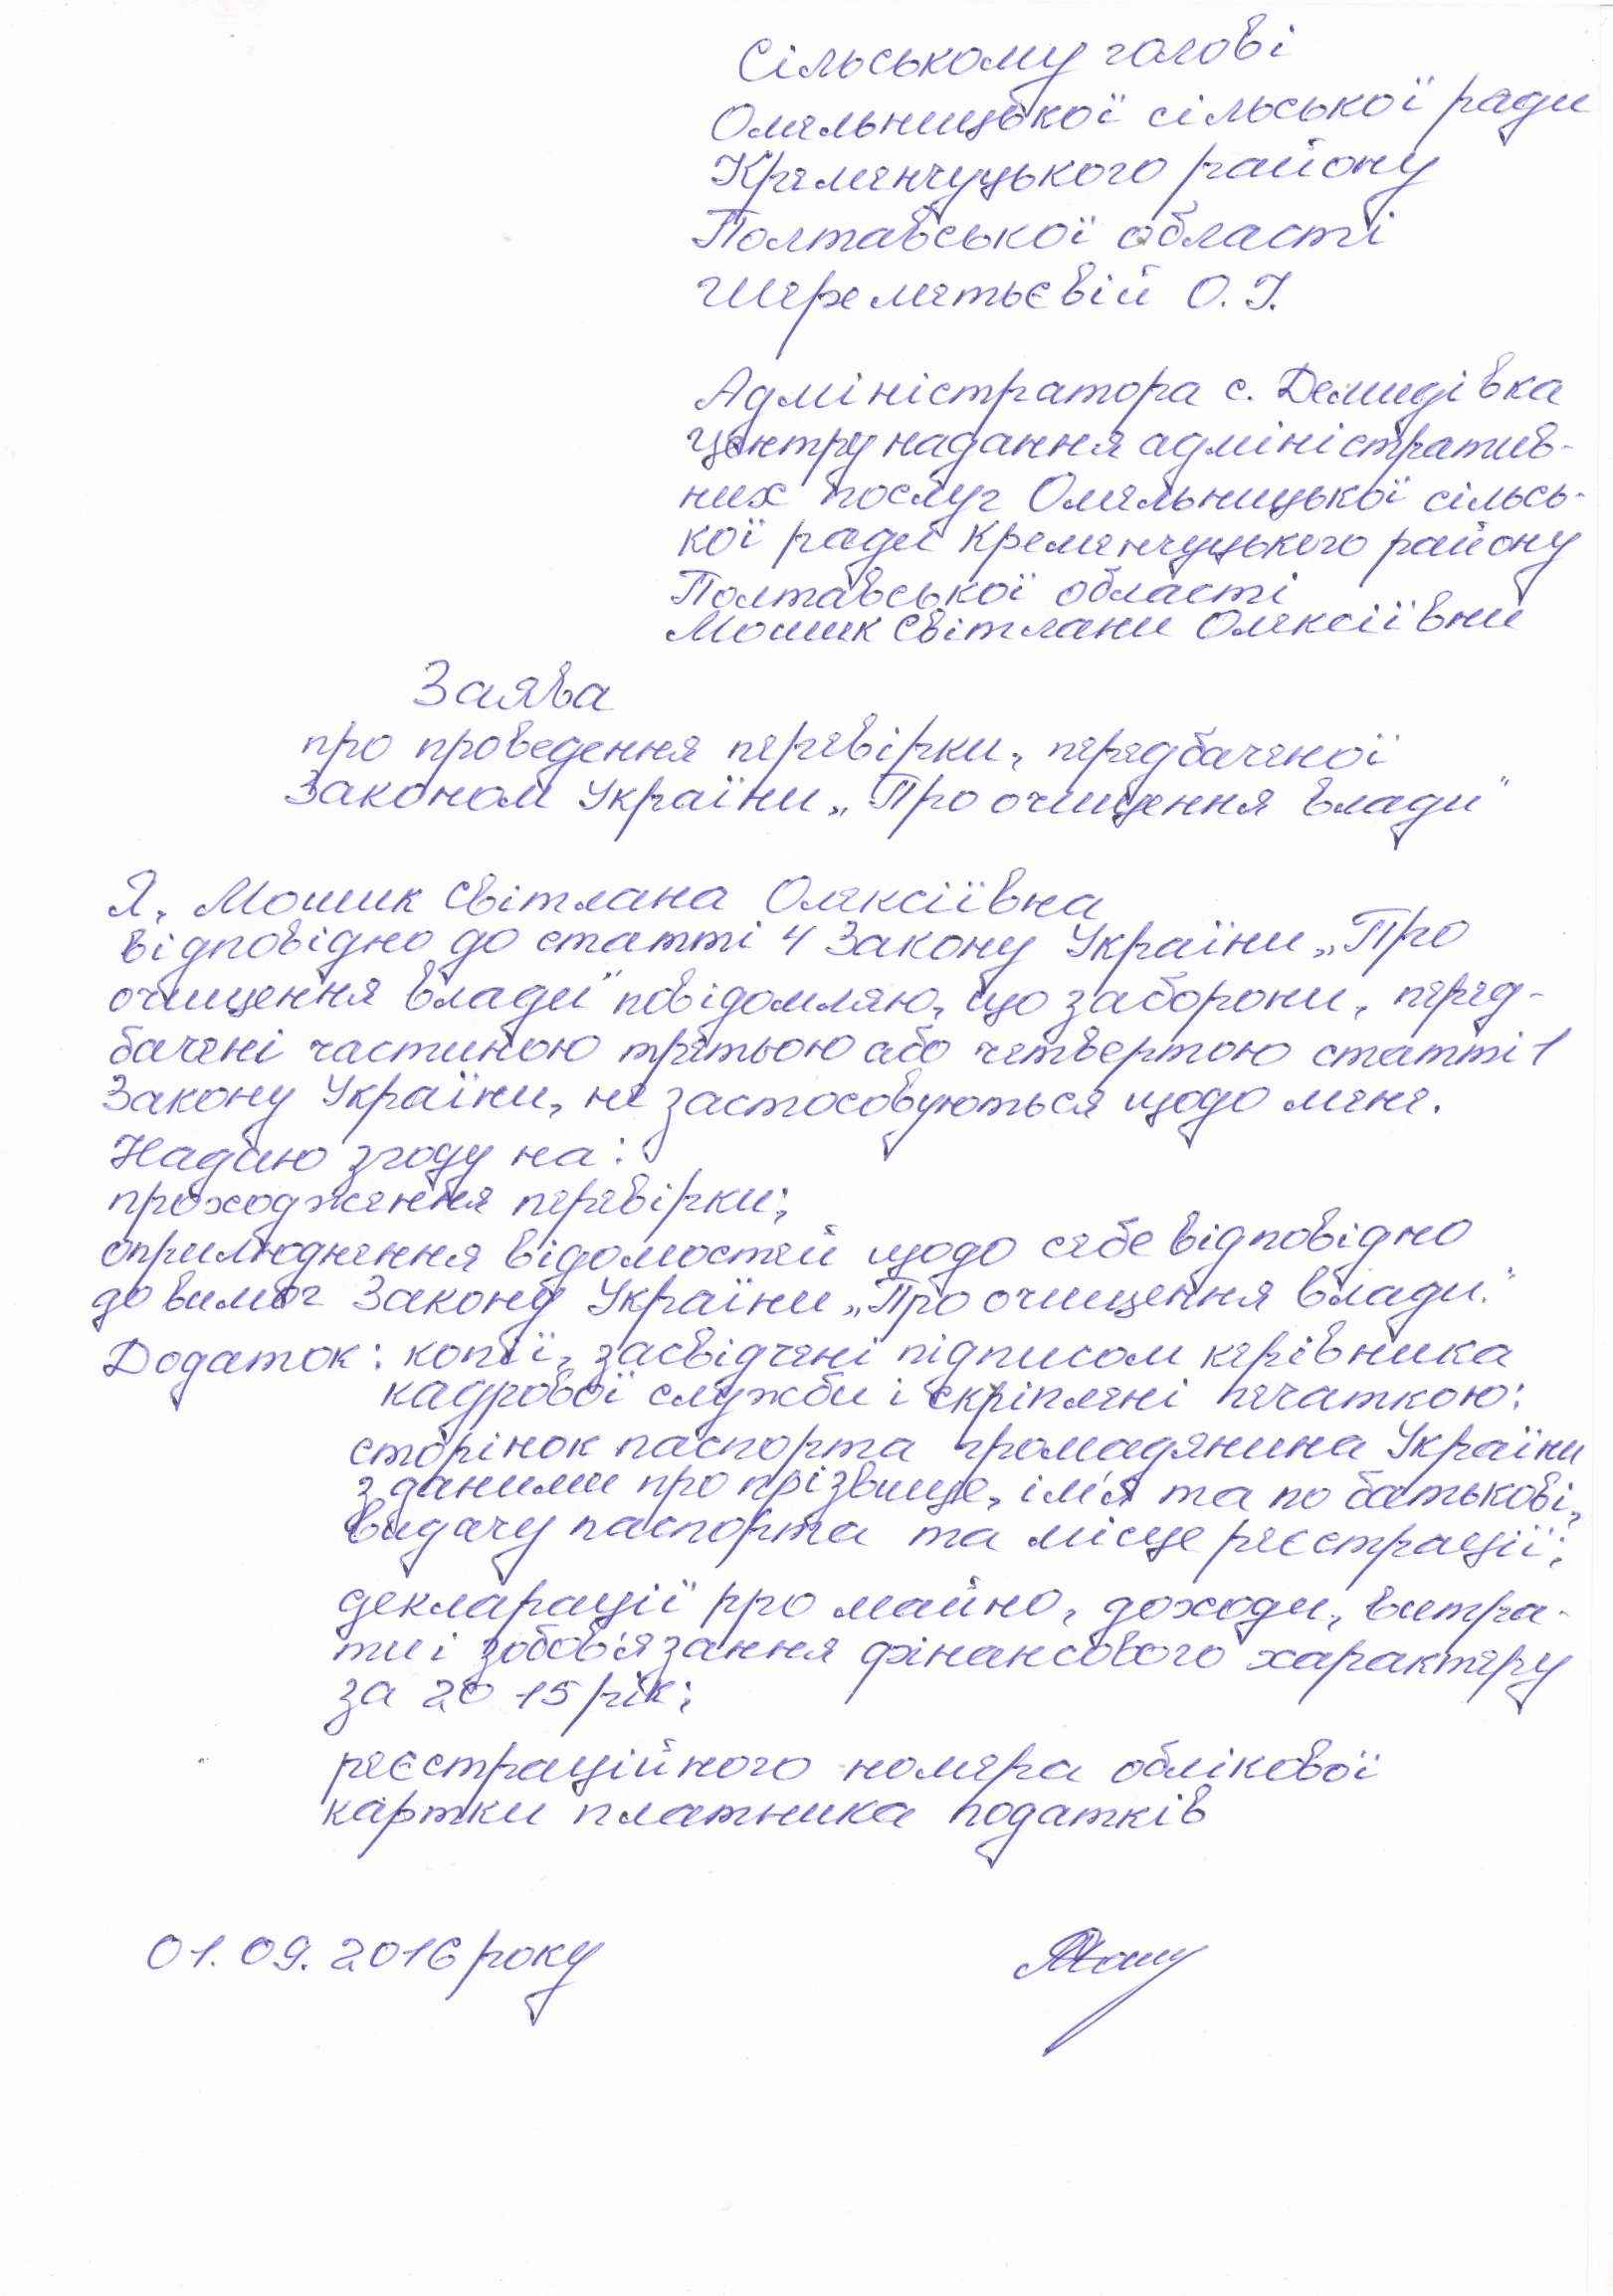 Сільському голові
Омельницької сільської ради
Кременчуцького району
Полтавської області
Шереметьєвій О. І.
Адміністратора с. Демидівка
центру надання адміністратив-
них послуг Омельницької сільсь-
кої ради Кременчуцького району
Полтавської області
Мошик Світлани Олексіївни
Заява
про проведення перевірки, передбаченої
Законом України „Про очищення влади"
Я, Мошик Світлана Олексіївна
відповідно до статті 4 Закону України „Про
очищення влади" повідомляю, що заборони, перед-
бачені частиною третьою або четвертою статті 1
Закону України, не застосовуються щодо мене.
Надаю згоду на:
проходження перевірки;
оприлюднення відомостей щодо себе відповідно
до вимог Закону України „Про очищення влади."
Додаток: копії, засвідчені підписом керівника
кадрової служби і скріплені печаткою:
сторінок паспорта громадянина України
з даними про прізвище, ім'я та по батькові,
видачу паспорта та місце реєстрації;
декларації про майно, доходи, витра-
ти і зобов'язання фінансового характеру
за 2015 рік;
реєстраційного номера облікової
картки платника податків
01.09.2016 року